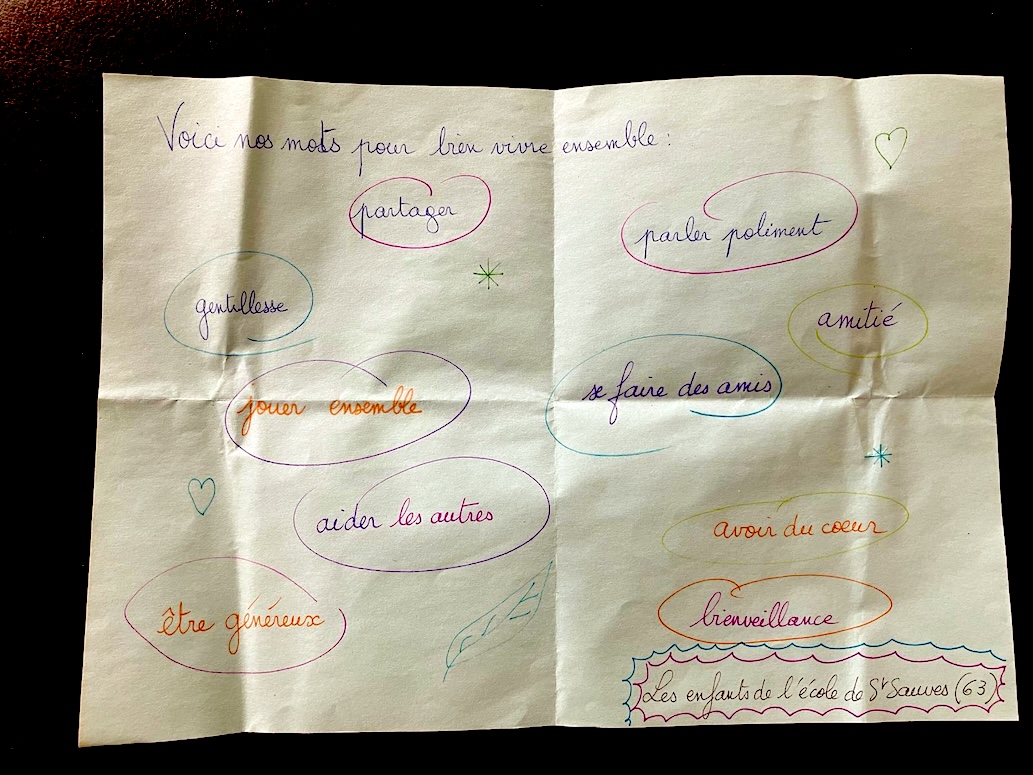 Voici nos mots pour bien vivre ensemble :
partager
parler poliment
gentillesse
amitié
jouer ensemble
se faire des amis
aider les autres
avoir du coeur
être généreux
bienveillance
Les enfants de l'école de St Sauves (63)